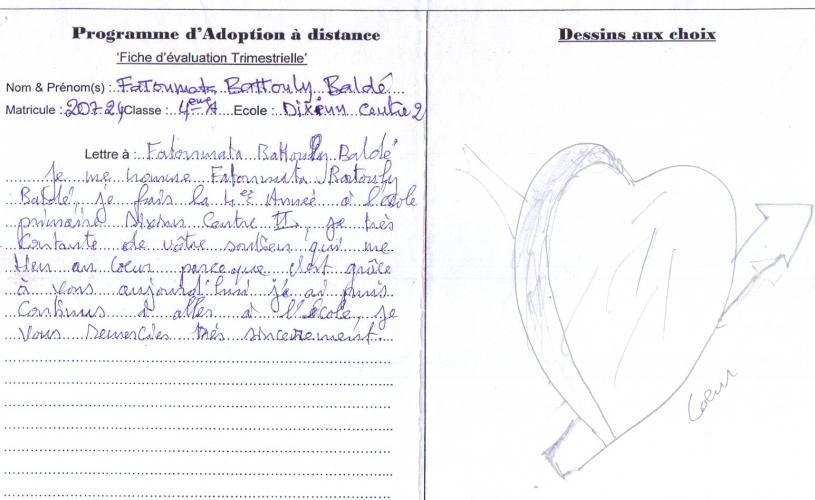 Programme d'Adoption à distance
'Fiche d'évaluation Trimestrielle'
Nom & Prénom(s) : Fatoumata Battouly Baldé
Matricule : 207-24 Classe : 4ème A Ecole : Dixinn Centre 2
Lettre à : Fatoumata Battouly Baldé
Je me nomme Fatoumata Batouly
Baldé, je fais la 4e Année à l'école
primaire Dixinn Centre II, je très
Contante de vôtre soutien qui me
tien au Coeur parceque c'est grâce
à vous aujourd'hui je ai puis
Continus à aller à l'école, je
Vous Remercies très sincerement.
Dessins aux choix
Coeur